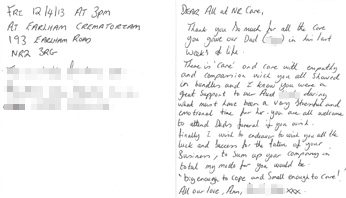 FRI 12/4/13 AT 3pm
AT EARLHAM CREMATORIUM
193 EARLHAM ROAD
NR2 3RG
DEAR All at NR Care,
Thank you so much for all the care
you give our Dad in his last
weeks of life.
There is 'Care' and care with empathy
and compassion which you all showed
in bundles and I know you were a
great support to our during
what must have been a very stressful and
emotional time for her. you are all welcome
to attend Dad's funeral if you wish.
Finally I wish to endeavor to wish you all the
luck and success for the future of your
Business, to sum up your company in
total my motto for you would be.
"big enough to cope and Small enough to care!"
All our love, Ann, xxx.